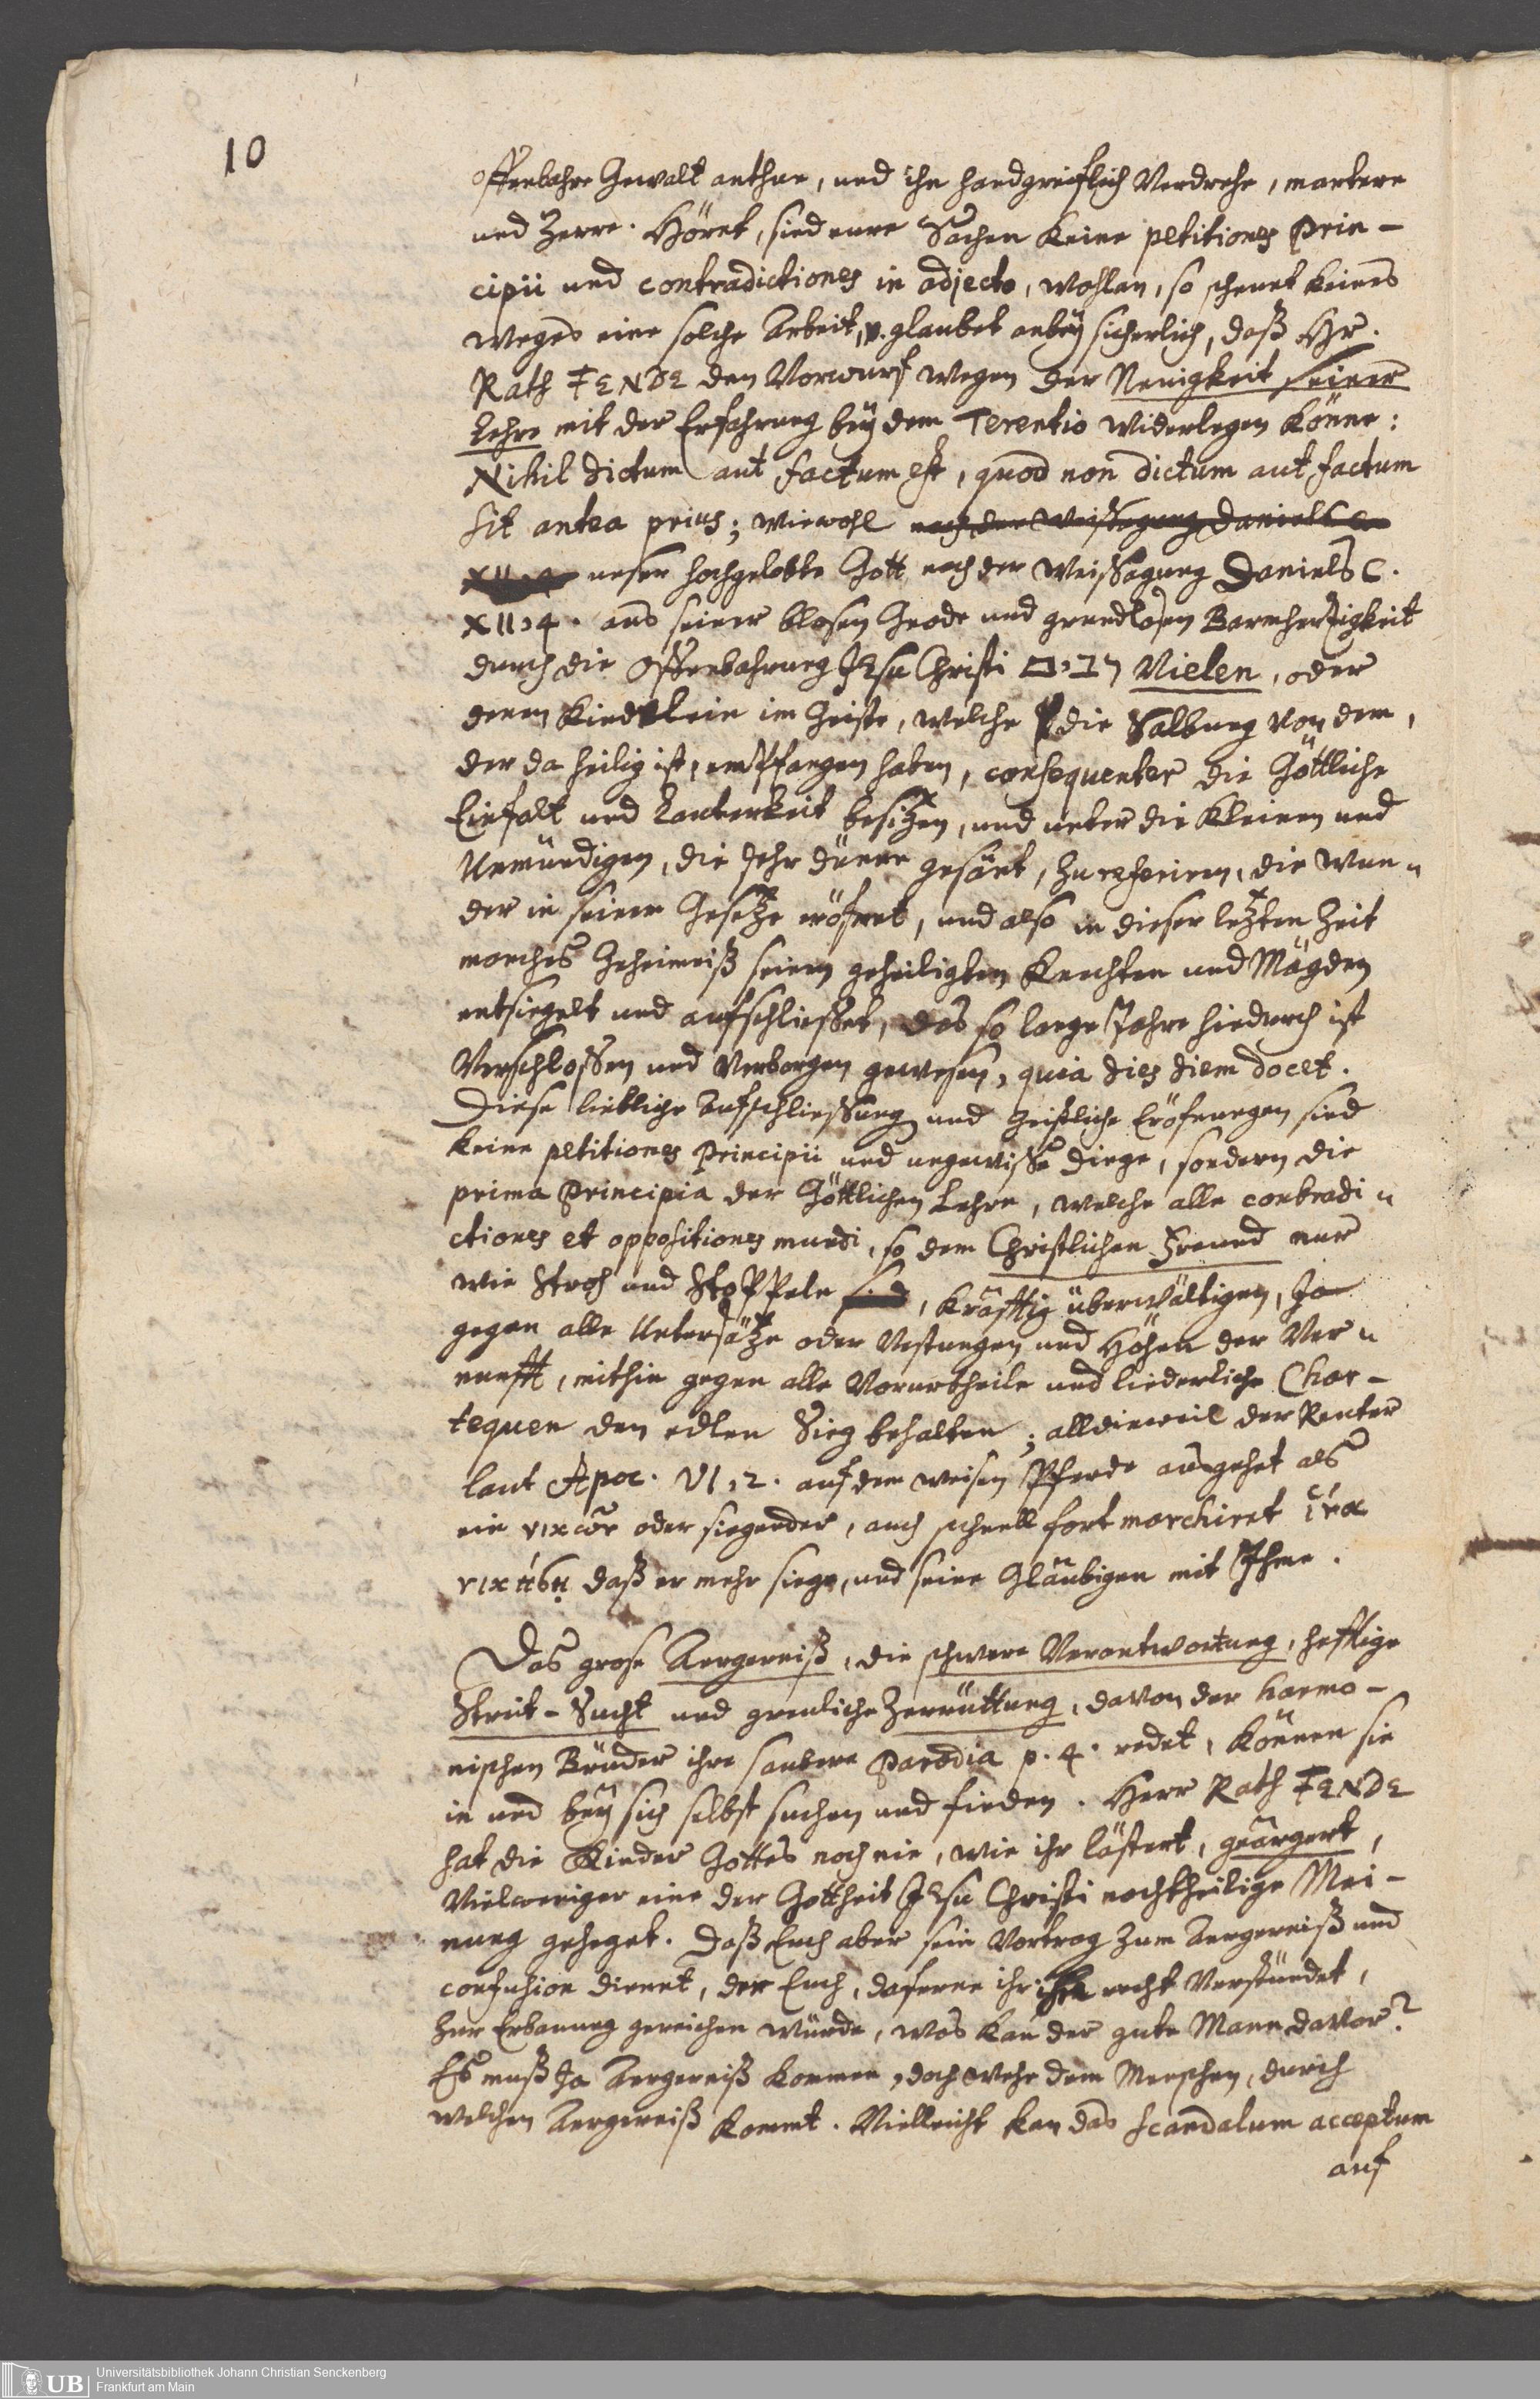 10
offenbahre Gewalt anthue, und ihn handgreiflich Verdrehe, martere
und Zerre. Höret, sind eure Sachen keine petitiones Prin-
cipii und contradictiones in adjecto, wohlan, so scheuet keines
weges eine solche Arbeit, u. glaubet anbey sicherlich, daß Hr.
Rath FENDE den Vorwurf wegen der Neuigkeit seiner
Lehre mit der Erfahrung bey dem Terentio widerlegen könne:
Nihil dictum aut factum est, quod non dictum aut factum
sit antea prius; wiewohl nach der Weissagung Daniels C.
XII.4. unser hochgelobte Gott nach der Weissagung Daniels C.
XII,4. aus seiner blosen Gnade und grundlosen Barmherzigkeit
durch die Offenbahrung JEsu Christi רבים Vielen, oder
denen Kindlein im Geiste, welche die Salbung von dem,
der da heilig ist, empfangen haben, consequenter die Göttliche
Einfalt und Lauterkeit besitzen, und unter die Kleinen und
Unmündigen, die sehr dünne gesäet, zu referiren, die Wun-
der in seinem Gesetze eröfnet, und also in dieser letzten Zeit
manches Geheimniß seinen geheiligten Knechten und Mägden
entsiegelt und aufschliesset, das so lange Jahre hindurch ist
Verschlossen und Verborgen gewesen, quia dies diem docet.
Diese liebliche Aufschliessung und Geistliche Eröfnungen sind
keine petitiones Principii und ungewisse Dinge, sondern die
prima Principia der Göttlichen Lehre, welche alle contradi-
ctiones et oppositiones mundi, so dem Christlichen Freund nur
wie Stroh und Stoppeln sind, kräfftig überwältigen, Ja
gegen alle Untersätze oder Vestungen und Höhen der Ver-
nunfft, mithin gegen alle Vorurtheile und liederliche Char-
tequen den edlen Sieg behalten; alldieweil der Reuter
laut Apoc. VI,2. auf dem weisen Pferde ausgehet als
ein νικῶν oder siegender, auch schnell fort marchiret ἵνα
νικήσῃ daß er mehr siege, und seine Gläubigen mit Ihme.
Das grose Aergerniß, die schwere Verantwortung, hefftige
Streit-Sucht und greuliche Zerrüttung, davon der harmo-
nischen Brüder ihre saubere Parodia p. 4. redet, können sie
in und bey sich selbst suchen und finden. Herr Rath FENDE
hat die Kinder Gottes noch nie, wie ihr lästert, geärgert,
Vielweniger eine der Gottheit JEsu Christi nachtheilige Mei-
nung geheget. Daß Euch aber sein Vortrag zum Aergerniß und
confusion dienet, der Euch, daferne ihr ihn recht Verstündet,
zur Erbauung gereichen würde, was kan der gute Mann davor?
Es muß Ja Aergerniß kommen, doch wehe dem Menschen, durch
welchen Aergerniß kommt. Vielleicht kan das scandalum acceptum
auf
UB
Universitätsbibliothek Johann Christian Senckenberg
Frankfurt am Main